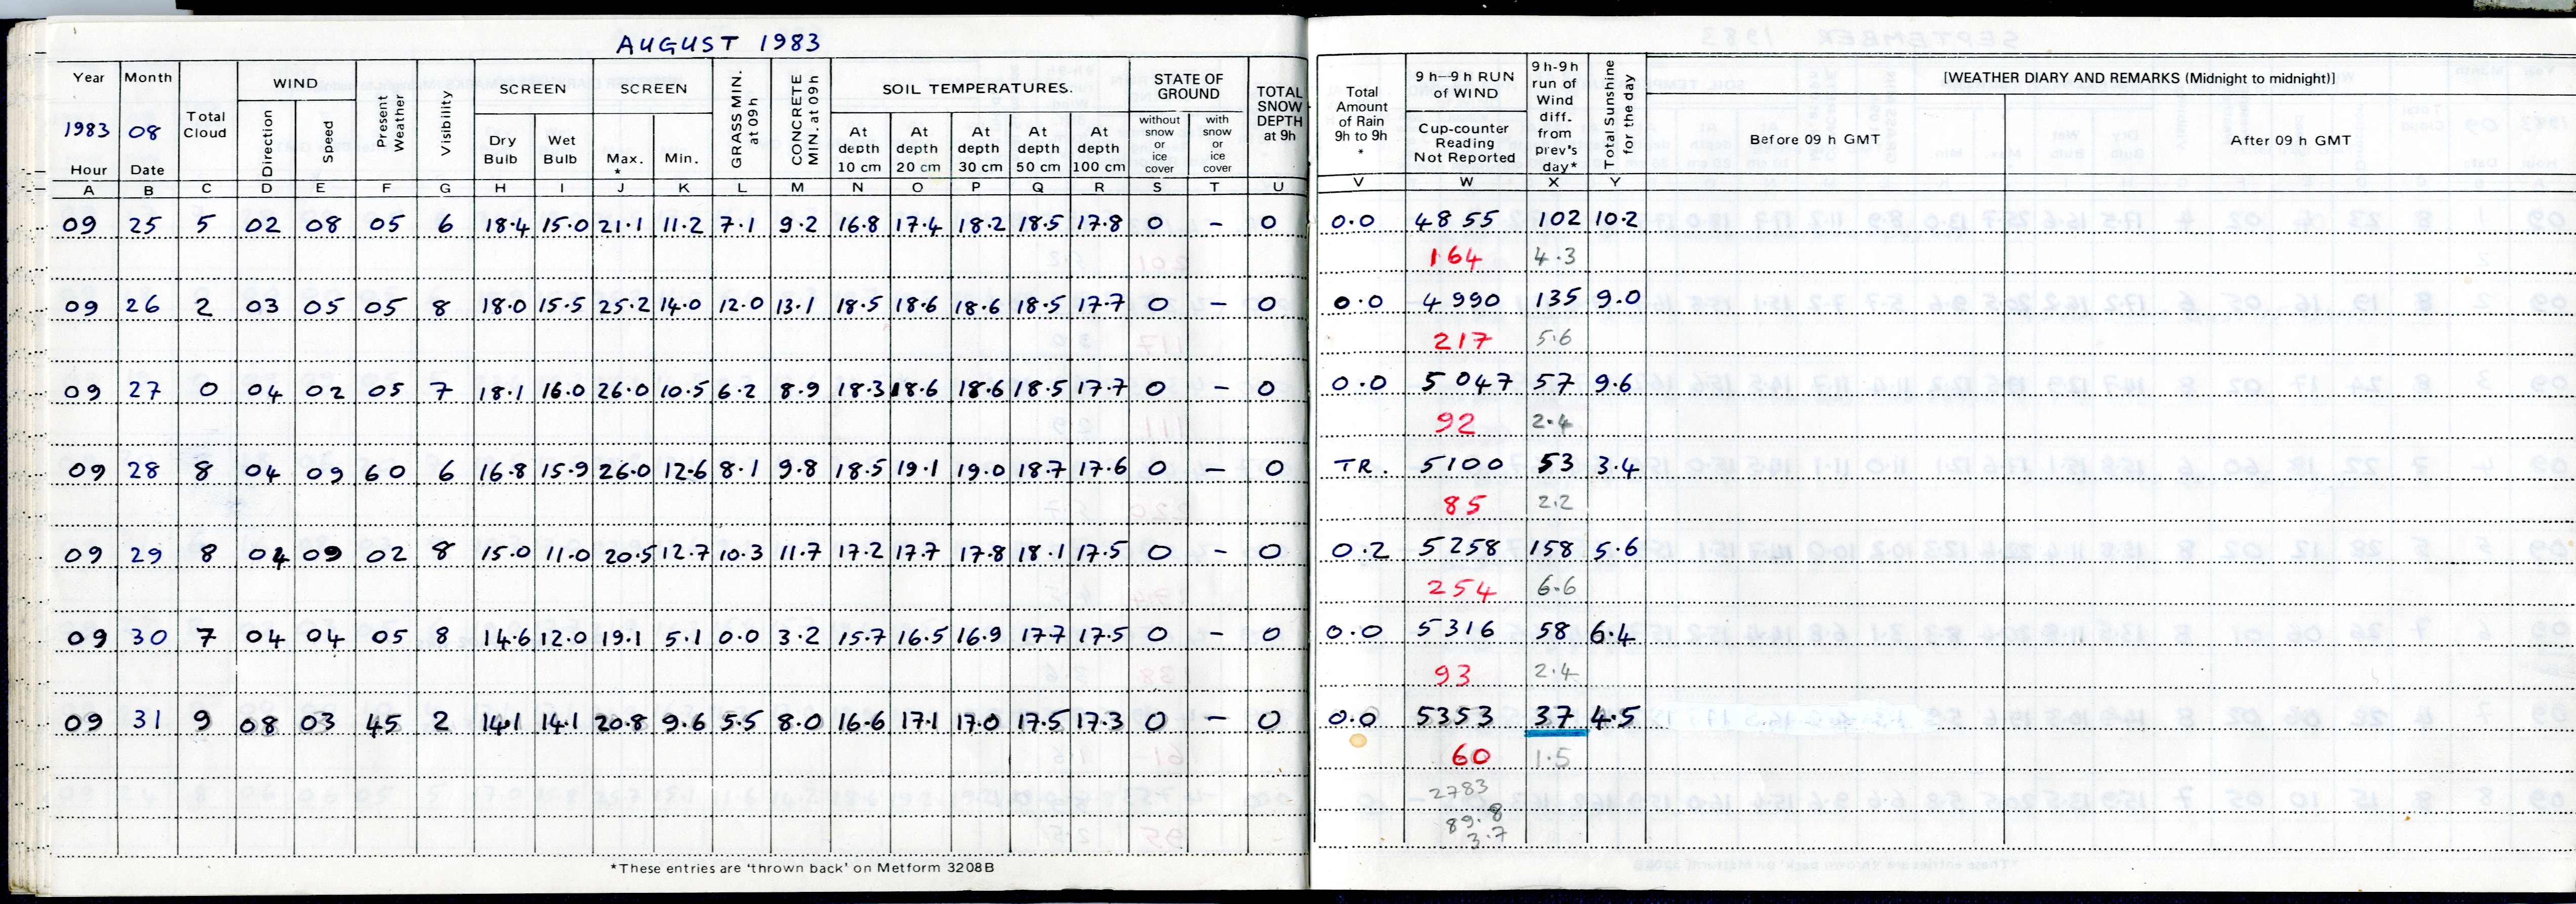 AUGUST 1983
Year Month Total Cloud WIND Present Weather Visibility SCREEN SCREEN GRASS MIN. at 09h CONCRETE MIN. at 09h SOIL TEMPERATURES. STATE OF GROUND TOTAL SNOW DEPTH at 9h Total Amount of Rain 9h to 9h * 9h—9h RUN of WIND 9h-9h run of Wind diff. from prev's day* Total Sunshine for the day [WEATHER DIARY AND REMARKS (Midnight to midnight)]
1983 08 Direction Speed Dry Bulb Wet Bulb Max. * Min. At depth 10 cm At depth 20 cm At depth 30 cm At depth 50 cm At depth 100 cm without snow or ice cover with snow or ice cover Cup-counter Reading Not Reported Before 09 h GMT After 09 h GMT
Hour Date
A B C D E F G H I J K L M N O P Q R S T U V W X Y
09 25 5 02 08 05 6 18.4 15.0 21.1 11.2 7.1 9.2 16.8 17.4 18.2 18.5 17.8 0 – 0 0.0 4855 102 10.2
164 4.3
09 26 2 03 05 05 8 18.0 15.5 25.2 14.0 12.0 13.1 18.5 18.6 18.6 18.5 17.7 0 – 0 0.0 4990 135 9.0
217 5.6
09 27 0 04 02 05 7 18.1 16.0 26.0 10.5 6.2 8.9 18.3 18.6 18.6 18.5 17.7 0 – 0 0.0 5047 57 9.6
92 2.4
09 28 8 04 09 60 6 16.8 15.9 26.0 12.6 8.1 9.8 18.5 19.1 19.0 18.7 17.6 0 – 0 TR. 5100 53 3.4
85 2.2
09 29 8 04 09 02 8 15.0 11.0 20.5 12.7 10.3 11.7 17.2 17.7 17.8 18.1 17.5 0 – 0 0.2 5258 158 5.6
254 6.6
09 30 7 04 04 05 8 14.6 12.0 19.1 5.1 0.0 3.2 15.7 16.5 16.9 17.7 17.5 0 – 0 0.0 5316 58 6.4
93 2.4
09 31 9 08 03 45 2 14.1 14.1 20.8 9.6 5.5 8.0 16.6 17.1 17.0 17.5 17.3 0 – 0 0.0 5353 37 4.5
60 1.5
2783
89.8
3.7
*These entries are 'thrown back' on Metform 3208B